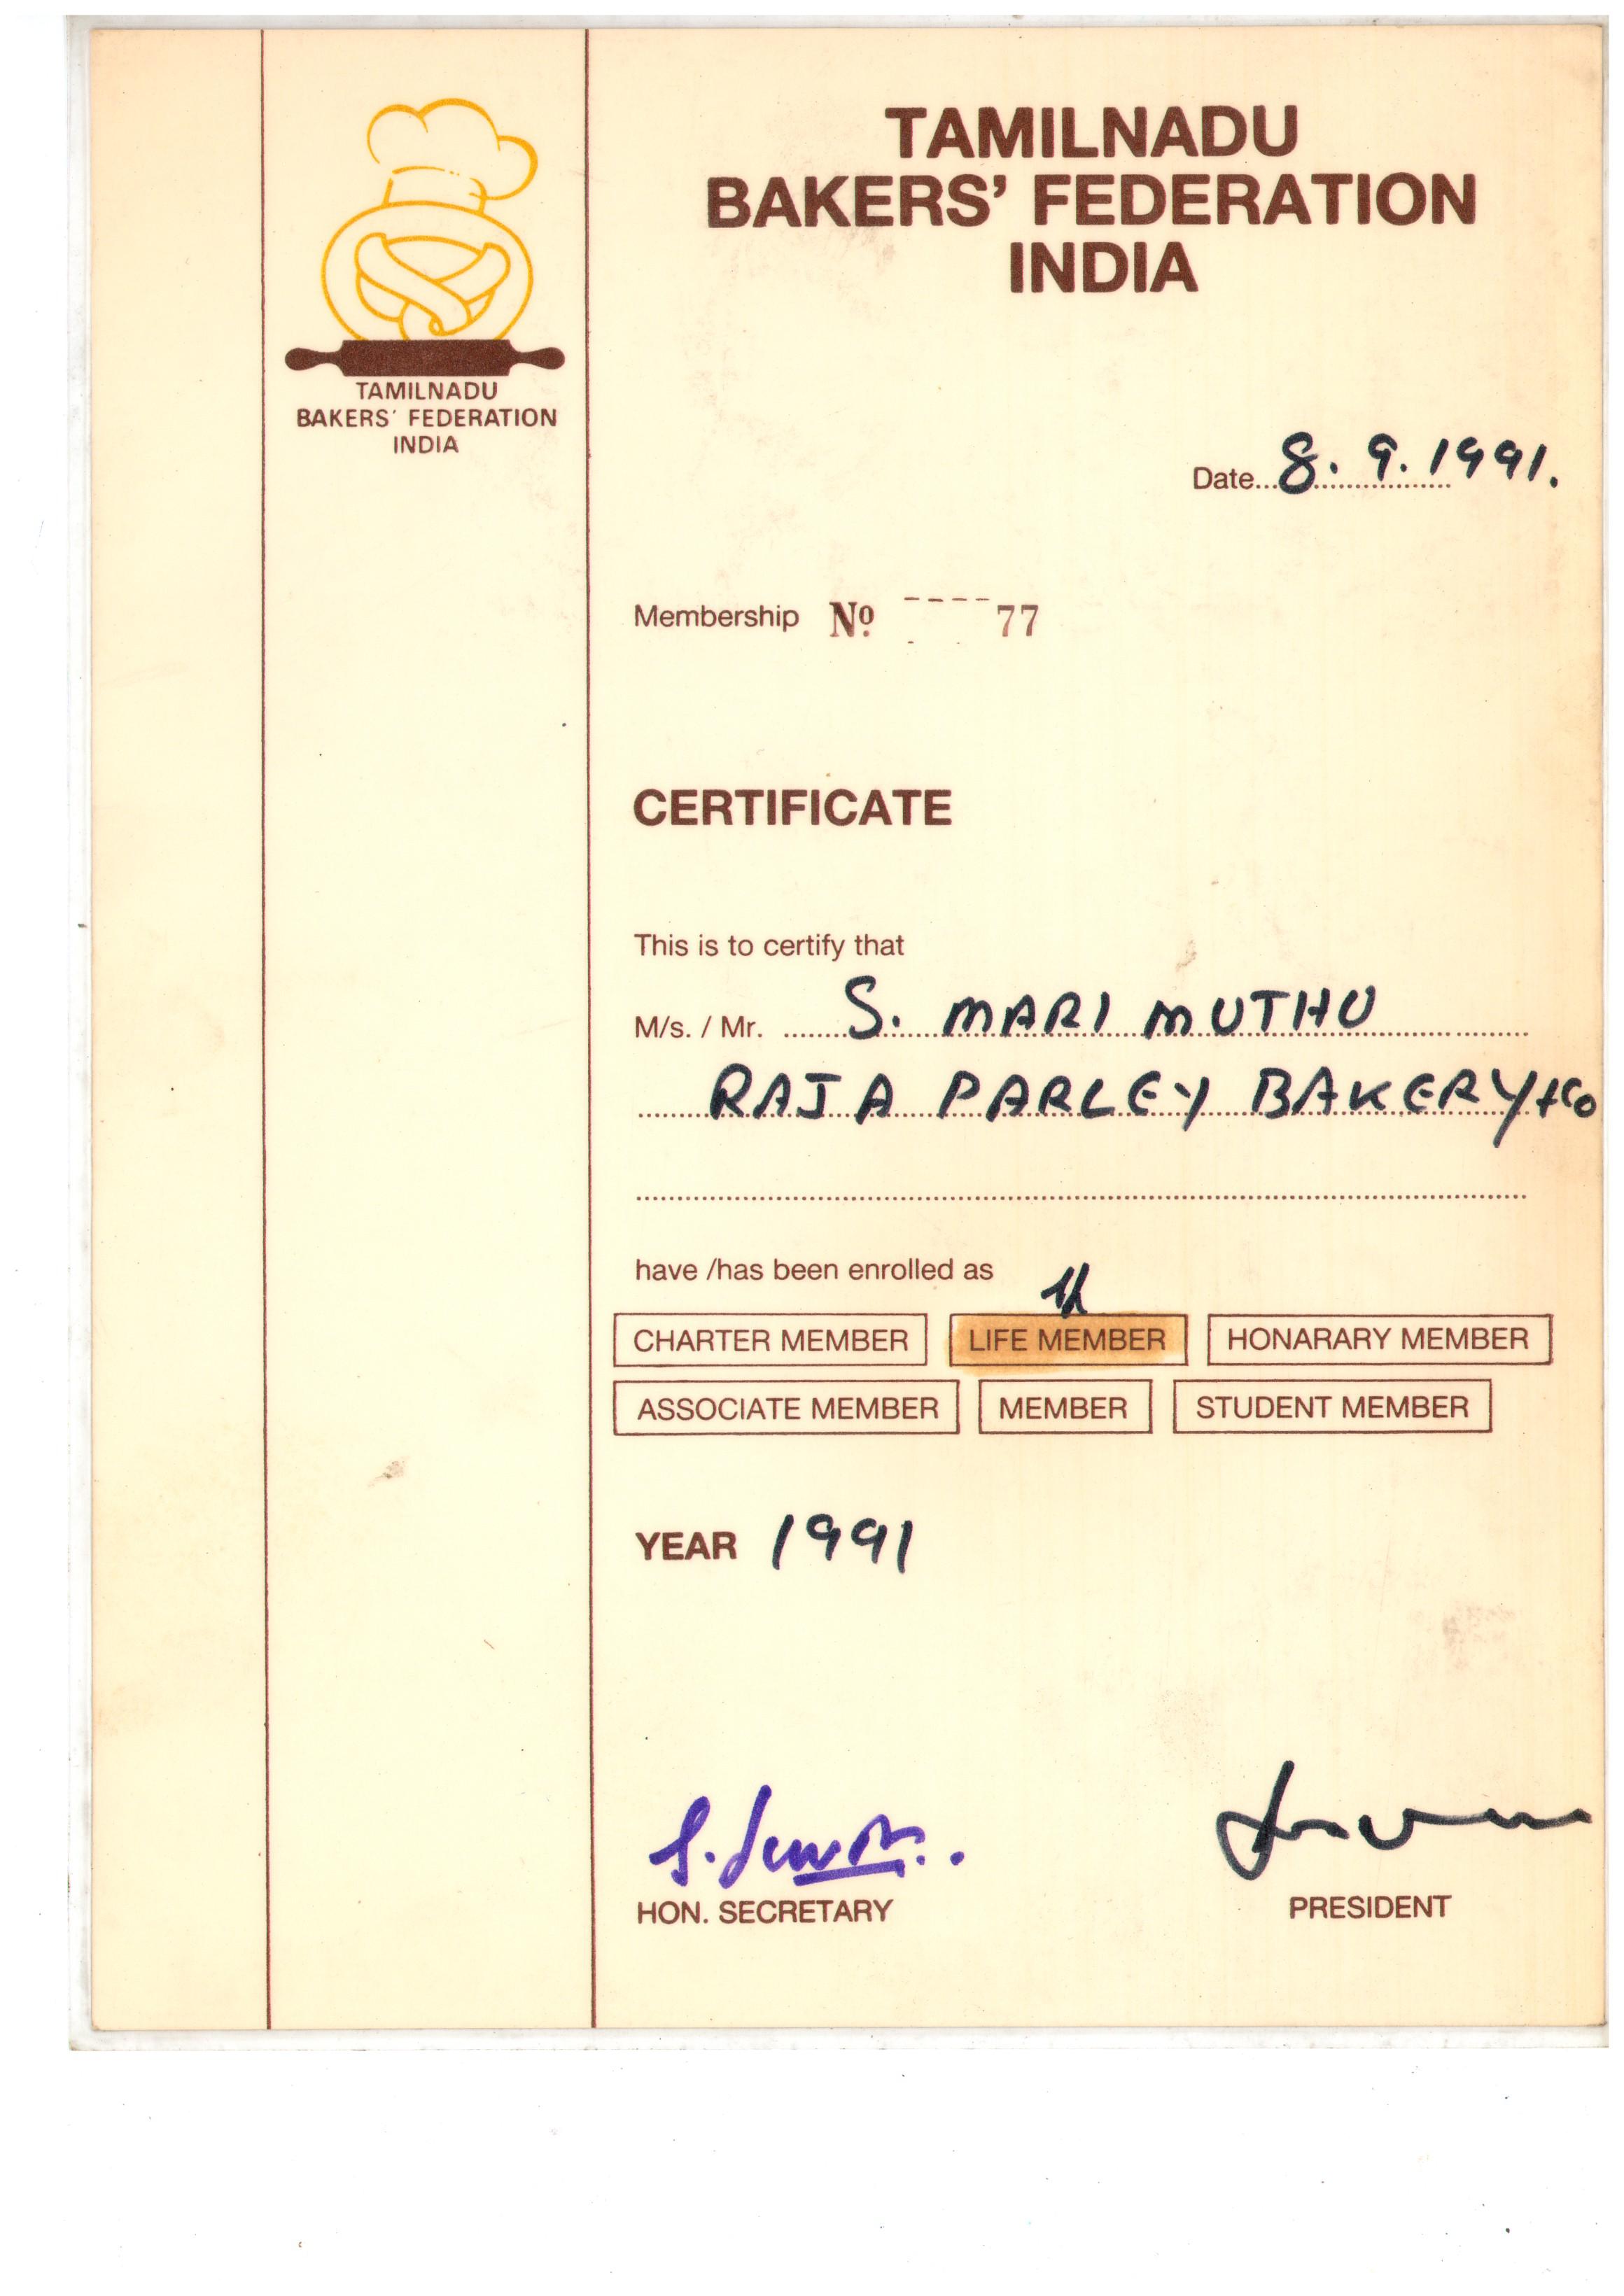 TAMILNADU
BAKERS' FEDERATION
INDIA
TAMILNADU
BAKERS' FEDERATION
INDIA
Date 8.9.1991.
Membership Nº 77
CERTIFICATE
This is to certify that
M/s. / Mr. S. MARI MUTHU
RAJA PARLEY BAKERY &Co
have /has been enrolled as
CHARTER MEMBER LIFE MEMBER HONARARY MEMBER
ASSOCIATE MEMBER MEMBER STUDENT MEMBER
YEAR 1991
HON. SECRETARY PRESIDENT